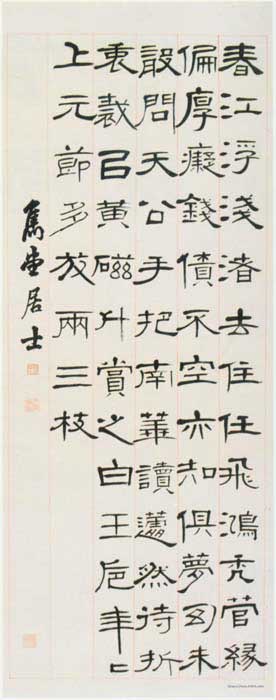 春江浮淺渚去住任飛鴻禿管緣
偏厚癡錢債不空亦知俱夢幻未
敢問天公手把南華讀蘧然待折
衷裁㠯黃磁斗賞之白玉卮年〻
上元節多放兩三枝
堂居士